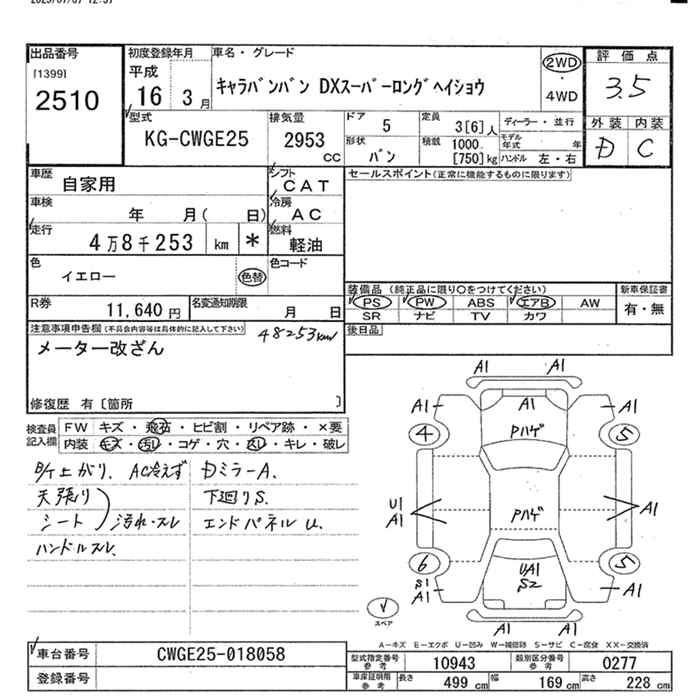 出品番号
[1399]
2510
初度登録年月
平成
16 3月
車名・グレード
キャラバンバン DXスーパーロングヘイショウ
2WD
・
4WD
評価点
3.5
外装 内装
D C
型式
KG-CWGE25
排気量
2953
CC
ドア 5
形状
バン
定員
3[6]人
積載 1000
[750]kg
ディーラー・並行
モデル年式 年
ハンドル 左・右
車歴
自家用
シフト
CAT
車検
年 月( 日)
冷房
AC
走行
4万8千253 km *
燃料
軽油
色
イエロー
色替
色コード
R券
11,640円
名変通知期限
月 日
セールスポイント(正常に機能するものに限ります)
装備品(純正品に限り○をつけてください)
PS PW ABS エアB AW
SR ナビ TV カワ
新車保証書
有・無
後日品
注意事項申告欄(不具合内容等は具体的に記入して下さい)
48253km
メーター改ざん
修復歴 有〔箇所 〕
検査員記入欄
FW キズ・飛石・ヒビ割・リペア跡・×要
内装 キズ・汚れ・コゲ・穴・スレ・キレ・破レ
上がり、AC冷えず
天張り
シート
汚れ・スレ
ハンドルスレ.
DミラーA.
下廻りS.
エンドパネルU.
A1
A1
A1 A1 A1
Pハゲ
4 5
U1
A1
Pハゲ
A1
6 5
S1
A1
UA1
S2
A1
A1
A1
スペア
A-キズ E-エクボ U-凹み W-補修跡 S-サビ C-腐食 XX-交換済
車台番号
CWGE25-018058
登録番号
型式指定番号
参考
10943
類別区分番号
参考
0277
車庫証明用
参考
長さ 499 cm
幅 169 cm
高さ 228 cm